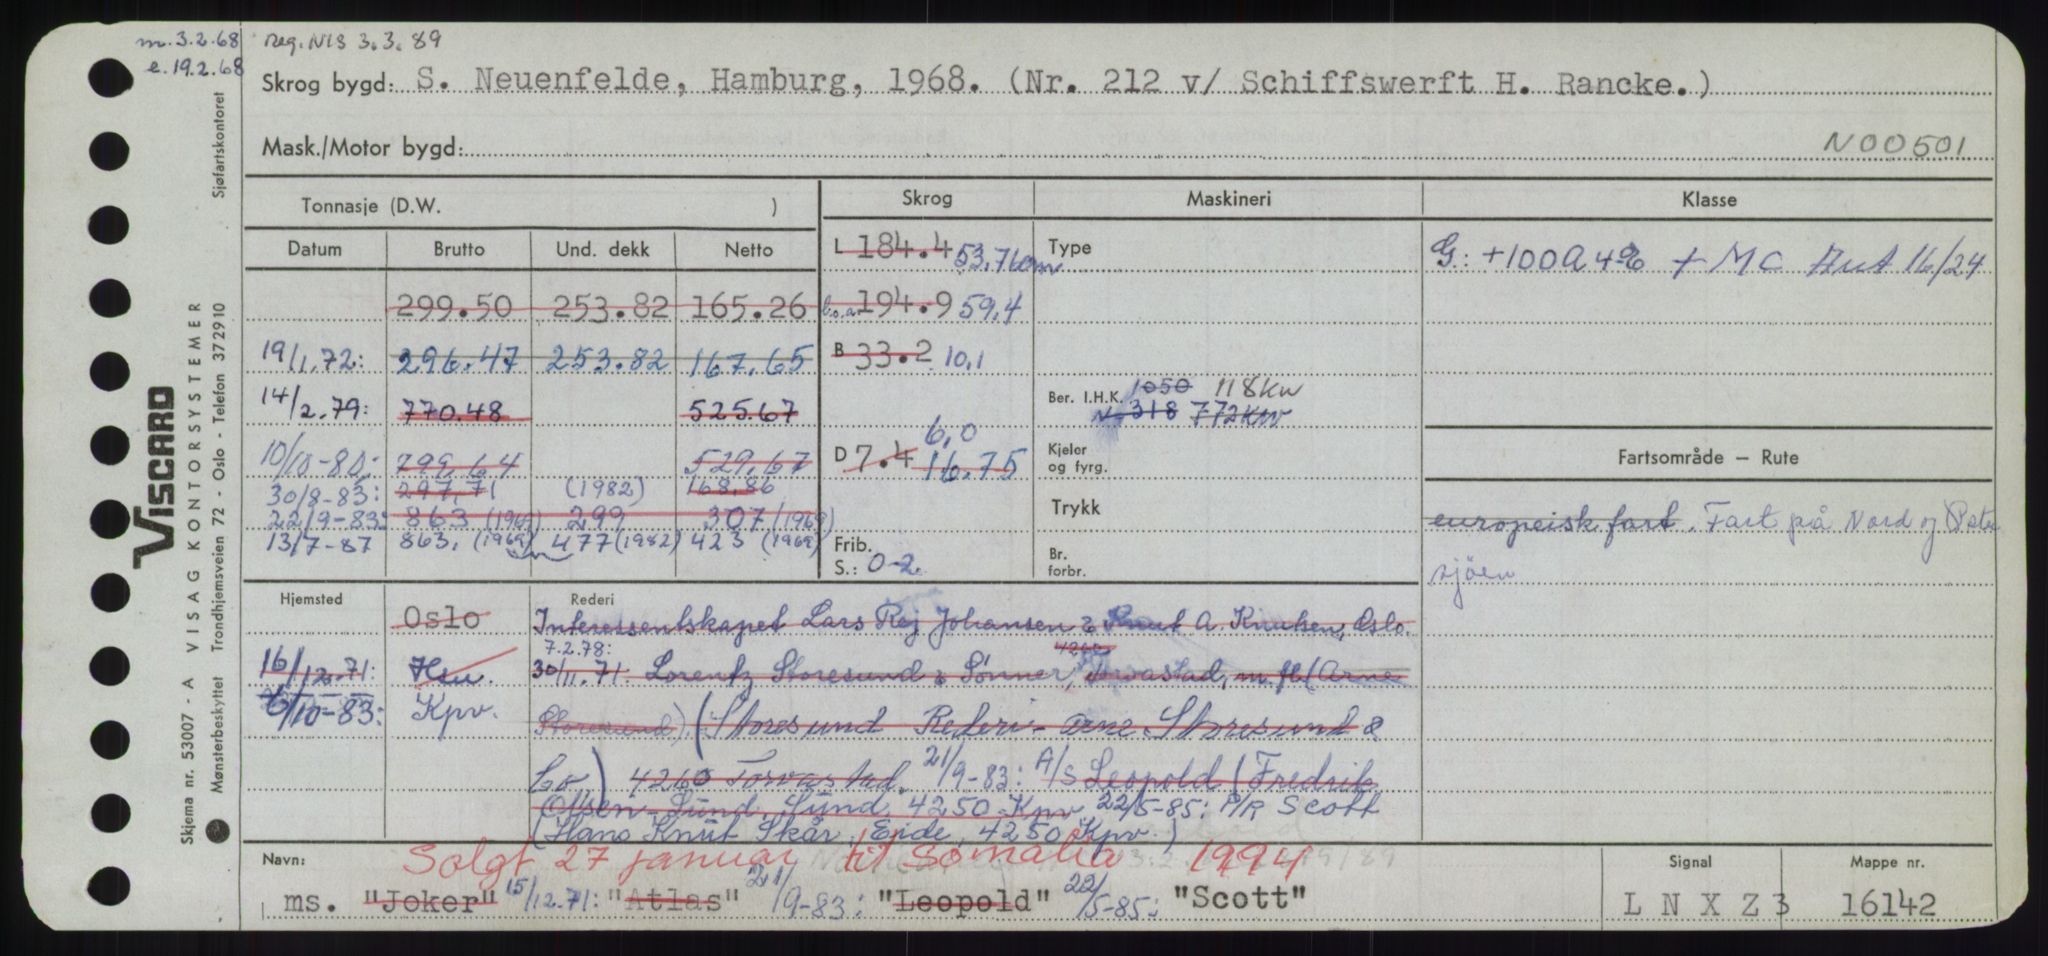 m. 3.2.68 reg. NIS 3.3.89
e. 19.2.68
Skrog bygd: S. Neuenfelde, Hamburg, 1968. (Nr. 212 v/ Schiffswerft H. Rancke.)
Mask./Motor bygd: N00501
Tonnasje (D.W. )
Datum Brutto Und. dekk Netto
299.50 253.82 165.26
19/1.72: 296.47 253.82 167.65
14/2.79: 770.48 525.67
10/10-80: 799,64 529,67
30/8-83: 297,71 (1982) 168.86
22/9-83: 863 (1969) 299 307 (1969)
13/7-87 863, (1969) 477 (1982) 423 (1969)
Skrog
L 184.4 53.76m
b.o.a. 194.9 59,4
B 33.2 10,1
6,0
D 7.4 16.75
Frib.
S.: 0-2
Maskineri
Type
Ber. I.H.K. 1050 118kw
N. 318 772kw
Kjeler
og fyrg.
Trykk
Br.
forbr.
Klasse
G: +100A4 + MC Aut 16/24
Fartsområde – Rute
europeisk fart. Fart på Nord og Øster
sjøen
Hjemsted Rederi
Oslo Interessentskapet Lars Rej Johansen & Knut A. Knutsen, Oslo.
7.2.78: 4260
16/12.71: Hsu. 30/11.71: Lorentz Storesund & Sønner, Torvastad, m.fl. (Arne
6/10-83: Kpv. Storesund) (Storesund Rederi - Arne Storesund &
Co) 4260 Torvastad. 21/9-83: A/S Leopold (Fredrik
Ottsen Lund, Sund, 4250 Kpv. 22/5-85: P/R Scott
(Hans Knut Skår, Eide, 4250 Kpv.)
Solgt 27 januar til Somalia 1994
Navn:
ms. "Joker" 15/12.71: "Atlas" 21/9-83: "Leopold" 22/5-85: "Scott"
Signal
L N X Z 3
Mappe nr.
16142
Skjema nr. 53007 - A VISAG KONTORSYSTEMER Sjøfartskontoret
Mønsterbeskyttet Trondhjemsveien 72 - Oslo - Telefon 372910
VISCARD